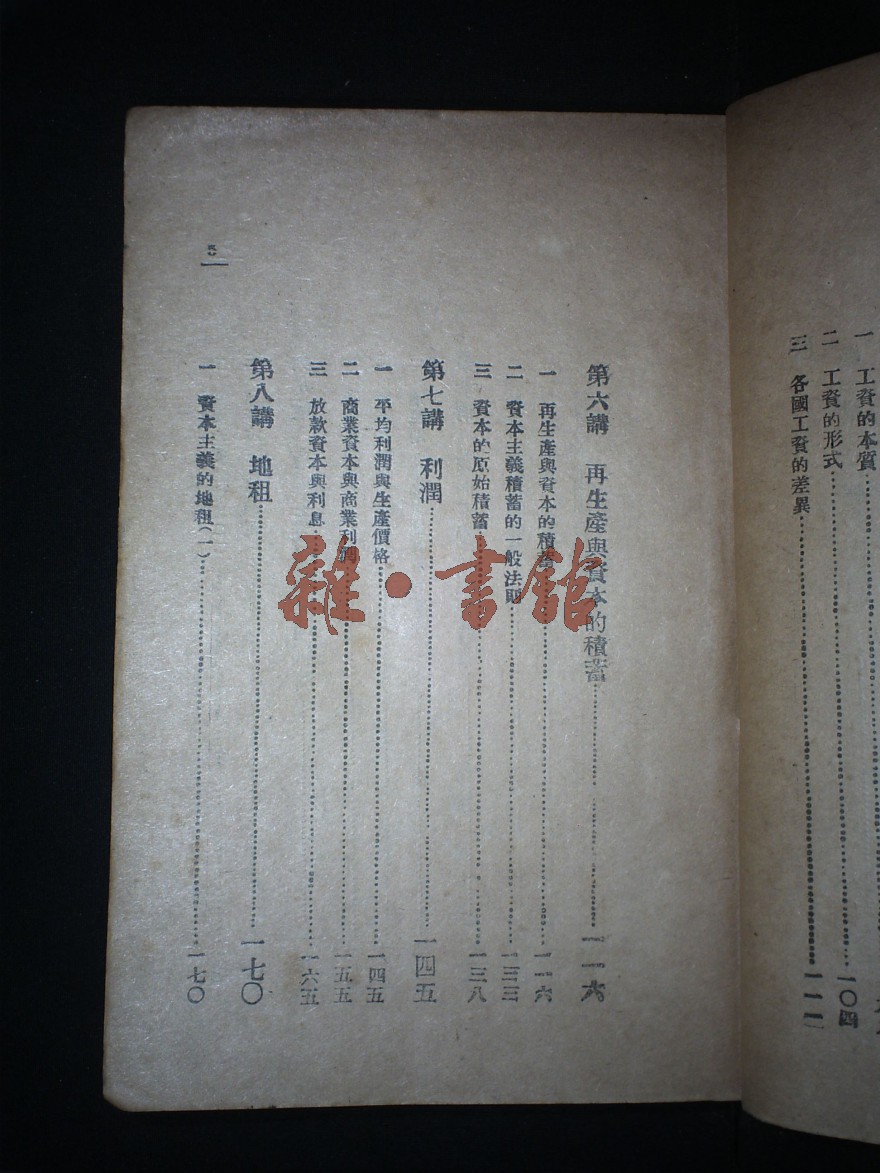 一 工資的本質
二 工資的形式……一〇四
三 各國工資的差異……一一一
第六講 再生產與資本的積蓄……一一六
一 再生產與資本的積蓄……一一六
二 資本主義積蓄的一般法則……一三三
三 資本的原始積蓄……一三八
第七講 利潤……一四五
一 平均利潤與生產價格……一四五
二 商業資本與商業利潤……一五五
三 放款資本與利息……一六五
第八講 地租……一七〇
一 資本主義的地租(一)……一七〇
5
雜·書館